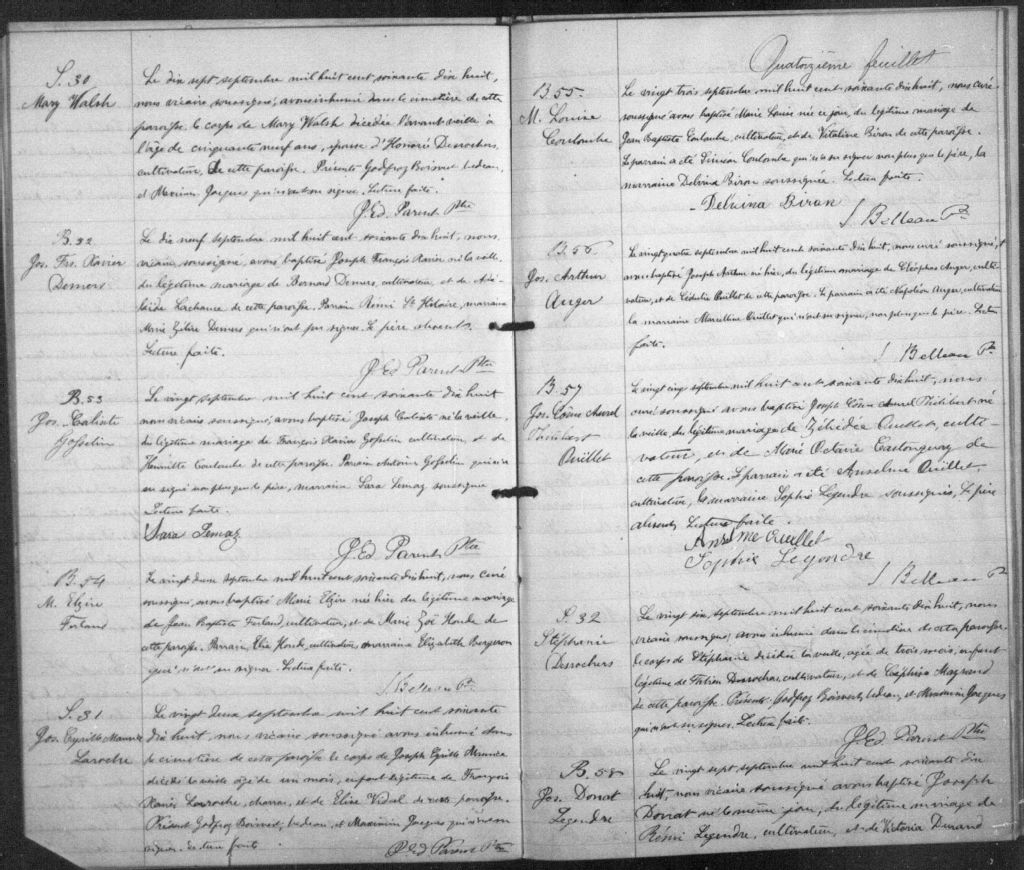 S. 30
Mary Walsh
Le dix sept septembre mil huit cent soixante dix huit,
nous vicaire soussigné, avons inhumé dans le cimetière de cette
paroisse le corps de Mary Walsh décédée l'avant veille à
l'âge de cinquante neuf ans, épouse d'Honoré Desrochers
cultivateur, de cette paroisse. Présents Godfroy Boisvert, bedeau,
et Maximin Jacques qui n'ont su signer. Lecture faite.
J. Ed. Parent Ptre
B. 52
Jos. Frs. Xavier
Demers
Le dix neuf septembre mil huit cent soixante dix huit, nous
vicaire soussigné, avons baptisé Joseph François Xavier né la veille,
du légitime mariage de Bernard Demers, cultivateur, et de Adé-
laïde Lachance de cette paroisse. Parrain Rémi St Hilaire, marraine
Marie Demers qui n'ont pu signer. Le père absent.
Lecture faite.
J. Ed. Parent Ptre
B. 53
Jos. Calixte
Gosselin
Le vingt septembre mil huit cent soixante dix huit
nous vicaire soussigné, avons baptisé Joseph Calixte né la veille,
du légitime mariage de François Xavier Gosselin cultivateur, et de
Henriette Coulombe de cette paroisse. Parrain Antoine Gosselin qui n'a
su signer non plus que le père, marraine Sara Lemay soussignée
Lecture faite.
Sara Lemay
J. Ed. Parent Ptre
B. 54
M. Elzire
Ferland
Le vingt deux septembre mil huit cent soixante dix huit, nous curé
soussigné, avons baptisé Marie Elzire née hier du légitime mariage
de Jean Baptiste Ferland, cultivateur, et de Marie Zoé Houde de
cette paroisse. Parrain, Elie Houde, cultivateur, marraine Elizabeth Bergeron
qui n'ont su signer. Lecture faite.
J. Belleau Ptre
S. 31
Jos. Cyrille Maurice
Laroche
Le vingt deux septembre mil huit cent soixante
dix huit, nous vicaire soussigné avons inhumé dans
le cimetière de cette paroisse le corps de Joseph Cyrille Maurice
décédé la veille âgé de un mois, enfant légitime de François
Xavier Laroche, charron, et de Elise Vidal de cette paroisse.
Présents Godfroy Boisvert, bedeau, et Maximin Jacques qui n'ont su
signer. Lecture faite
J. Ed. Parent Ptre
Quatorzième feuillet
B. 55
M. Louise
Coulombe
Le vingt trois septembre mil huit cent soixante dix huit, nous curé
soussigné avons baptisé Marie Louise née ce jour, du légitime mariage de
Jean Baptiste Coulombe, cultivateur, et de Vitaline Biron de cette paroisse.
Le parrain a été Siméon Coulombe qui n'a su signer non plus que le père, la
marraine Delvina Biron soussignée. Lecture faite.
Delvina Biron
J. Belleau Ptre
B. 56
Jos. Arthur
Auger
Le vingt quatre septembre mil huit cent soixante dix huit, nous curé soussigné,
avons baptisé Joseph Arthur né hier, du légitime mariage de Cléophas Auger, culti-
vateur, et de Cédulie Ouellet de cette paroisse. Le parrain a été Napoléon Auger, cultivateur
la marraine Marcelline Ouellet qui n'ont su signer, non plus que le père. Lecture
faite.
J. Belleau Ptre
B. 57
Jos. Côme Aurel
Philibert
Ouillet
Le vingt cinq septembre mil huit cent soixante dix huit, nous
curé soussigné avons baptisé Joseph Côme Aurel Philibert né
la veille, du légitime mariage de Zébédée Ouellet, culti-
vateur, et de Marie Octavie Castonguay de
cette paroisse. Le parrain a été Anselme Ouillet,
cultivateur, la marraine Sophie Legendre soussignés, le père
absent. Lecture faite.
Anselme Ouillet
Sophie Legendre
J. Belleau Ptre
S. 32
Stéphanie
Desrochers
Le vingt six septembre mil huit cent soixante dix huit, nous
vicaire soussigné, avons inhumé dans le cimetière de cette paroisse
le corps de Stéphanie décédée la veille, agée de trois mois, enfant
légitime de Desrochers, cultivateur, et de
de cette paroisse. Présents Godfroy Boisvert, bedeau, et Maximin Jacques
qui n'ont su signer. Lecture faite.
J. Ed. Parent Ptre
B. 58
Jos. Donat
Legendre
Le vingt sept septembre mil huit cent soixante dix
huit, nous vicaire soussigné avons baptisé Joseph
Donat né le même jour, du légitime mariage de
Rémi Legendre, cultivateur, et de Victoria Durand